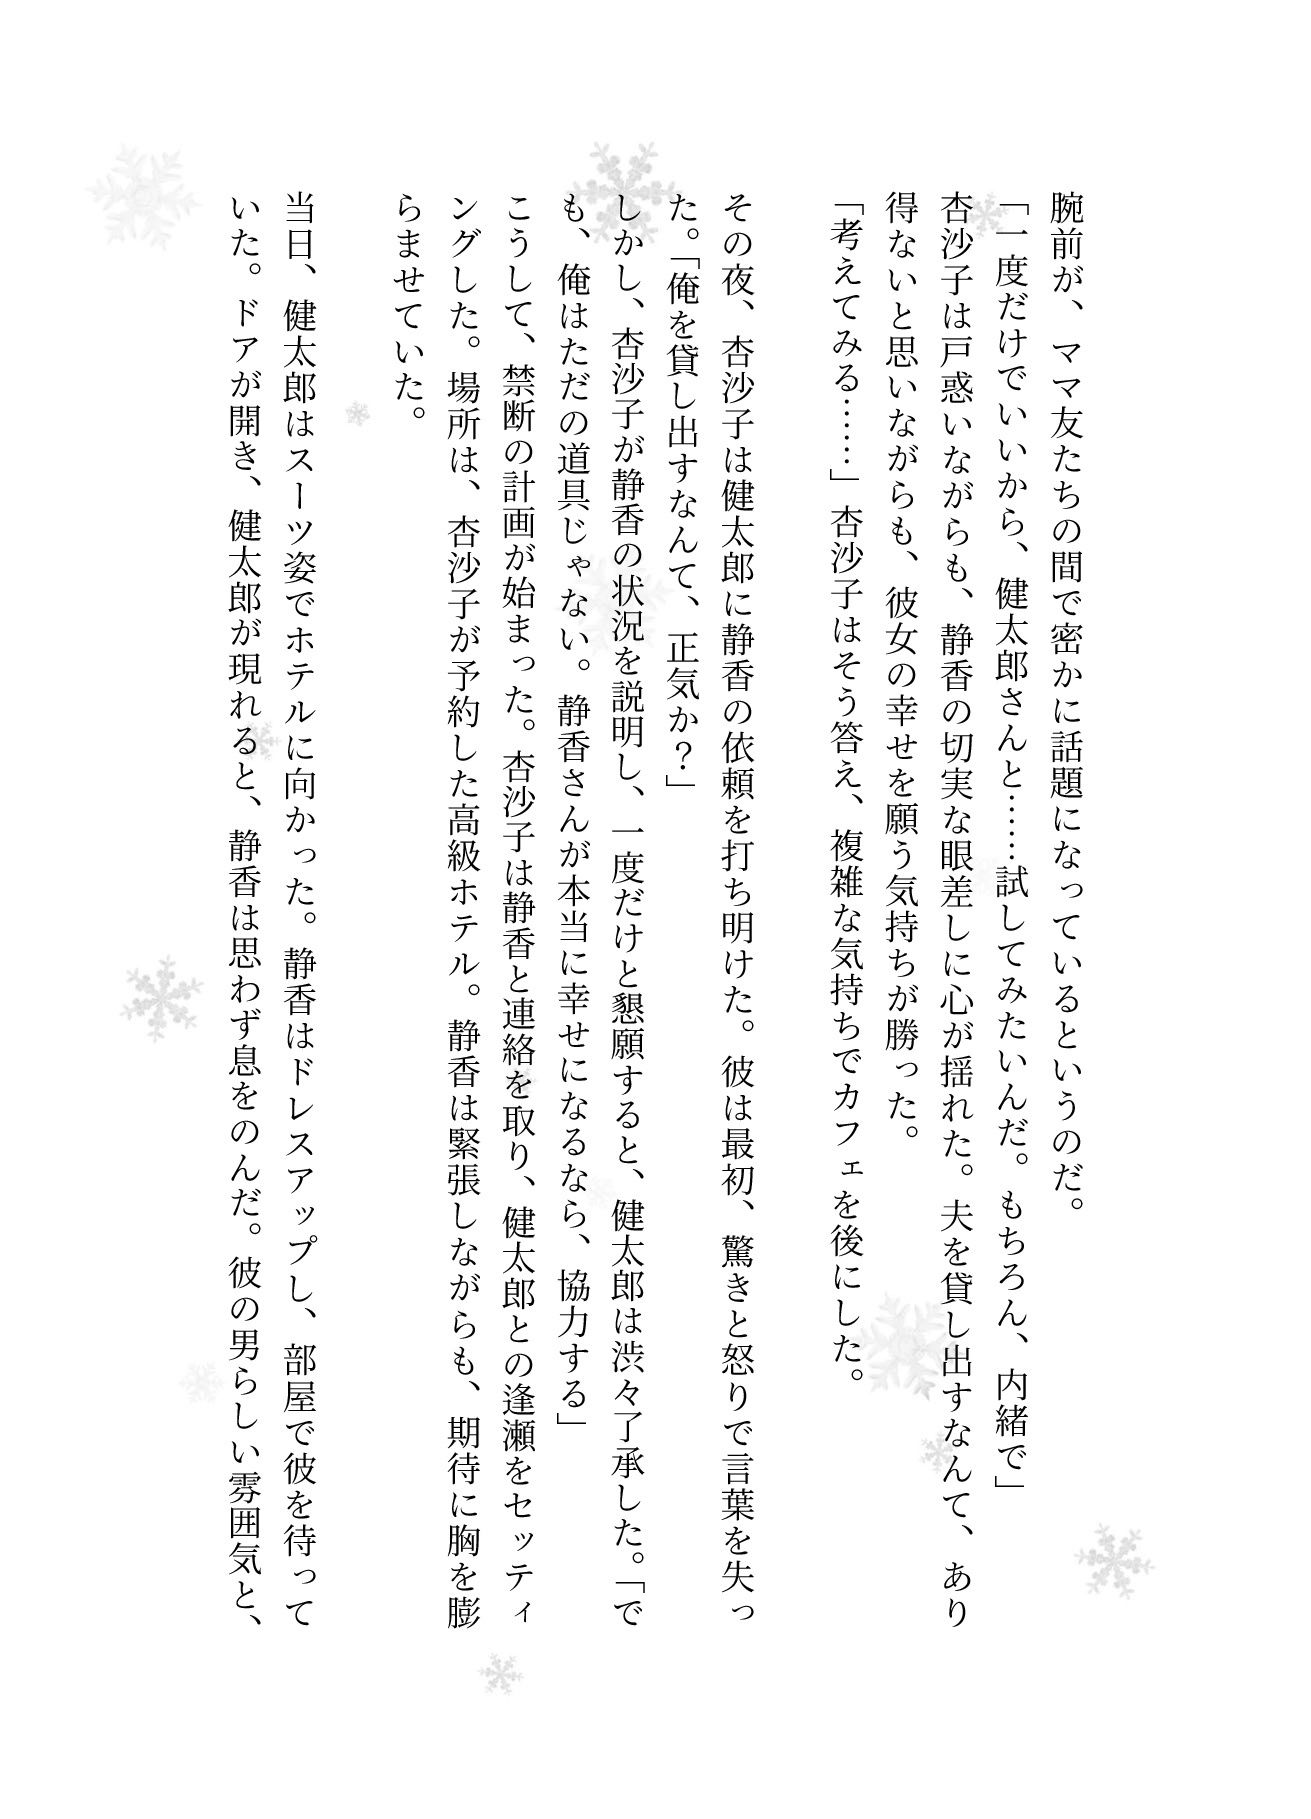 腕前が、ママ友たちの間で密かに話題になっているというのだ。
「一度だけでいいから、健太郎さんと……試してみたいんだ。もちろん、内緒で」
杏沙子は戸惑いながらも、静香の切実な眼差しに心が揺れた。夫を貸し出すなんて、あり
得ないと思いながらも、彼女の幸せを願う気持ちが勝った。
「考えてみる……」杏沙子はそう答え、複雑な気持ちでカフェを後にした。
その夜、杏沙子は健太郎に静香の依頼を打ち明けた。彼は最初、驚きと怒りで言葉を失っ
た。「俺を貸し出すなんて、正気か？」
しかし、杏沙子が静香の状況を説明し、一度だけと懇願すると、健太郎は渋々了承した。「で
も、俺はただの道具じゃない。静香さんが本当に幸せになるなら、協力する」
こうして、禁断の計画が始まった。杏沙子は静香と連絡を取り、健太郎との逢瀬をセッティ
ングした。場所は、杏沙子が予約した高級ホテル。静香は緊張しながらも、期待に胸を膨
らませていた。
当日、健太郎はスーツ姿でホテルに向かった。静香はドレスアップし、部屋で彼を待って
いた。ドアが開き、健太郎が現れると、静香は思わず息をのんだ。彼の男らしい雰囲気と、